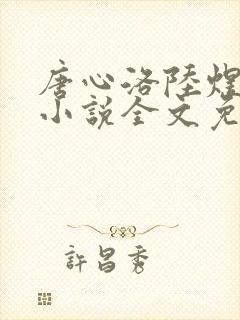 唐心洛陸煜
小說全文免
許昌秀